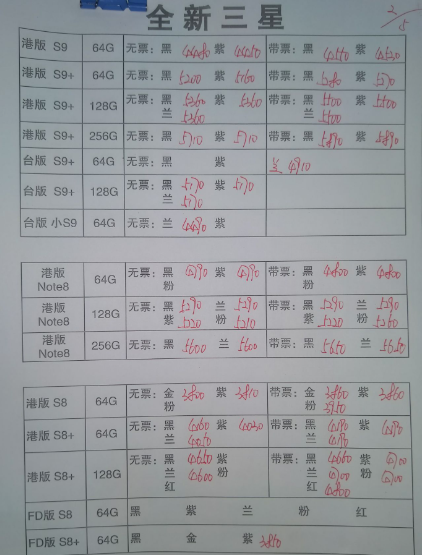 全新三星
2/5
港版 S9 64G 无票：黑 紫 带票：黑 紫
港版 S9+ 64G 无票：黑 5200 紫 5160 带票：黑 紫
港版 S9+ 128G 无票：黑 5360 紫 5360 带票：黑 5500 紫 5500
兰 5360 兰 5500
港版 S9+ 256G 无票：黑 5710 紫 5710 带票：黑 5890 紫 5890
台版 S9+ 64G 无票：黑 紫 兰 4910
台版 S9+ 128G 无票：黑 5170 紫 5170
兰 5170
台版 小S9 64G 无票：兰 4490 紫
港版 Note8 64G 无票：黑 紫 带票：黑 4800 紫 4800
粉 粉
港版 Note8 128G 无票：黑 5290 兰 5290 带票：黑 5290 兰 5290
紫 5220 粉 5210 紫 5220 粉 5260
港版 Note8 256G 无票：黑 5600 兰 5600 带票：黑 5650 兰 5650
港版 S8 64G 无票：金 3800 紫 3810 带票：金 3860 紫 3860
粉 粉
港版 S8+ 64G 无票：黑 4160 紫 4030 带票：黑 4190 紫 4190
兰 4050 兰 4190
港版 S8+ 128G 无票：黑 4650 紫 带票：黑 4660 紫 4700
兰 4600 粉 兰 4700 粉 4700
红 红 4800
FD版 S8 64G 黑 紫 兰 粉 红
FD版 S8+ 64G 黑 金 紫 3850